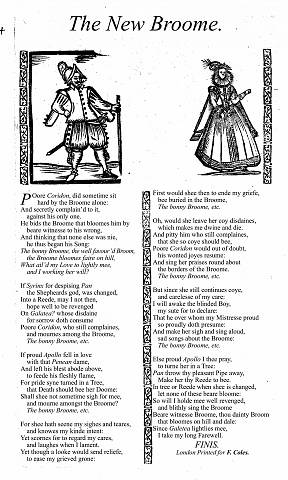 The New Broome.
POore Coridon, did sometime sit
hard by the Broome alone:
And secretly complain'd to it,
against his only one,
He bids the Broome that bloomes him by
beare witnesse to his wrong,
And thinking that none else was nie,
he thus began his Song:
The bonny Broome, the well favour'd Broom,
the Broome bloomes faire on hill,
What ail'd my Love to lightly mee,
and I working her will?
If Syrinx for despising Pan
the Shepheards god, was changed,
Into a Reede, may I not then,
hope well to be revenged
On Galatea? whose disdaine
for sorrow doth consume
Poore Coridon, who still complaines,
and mournes among the Broome.
The bonny Broome, etc.
If proud Apollo fell in love
with that Penean dame,
And left his blest abode above,
to feede his fleshly flame,
For pride syne turned in a Tree,
that Death should bee her Doome:
Shall shee not sometime sigh for mee,
and mourne amongst the Broome?
The bonny Broome, etc.
For shee hath seene my sighes and teares,
and knowes my kinde intent:
Yet scornes for to regard my cares,
and laughes when I lament.
Yet though a looke would send reliefe,
to ease my grieved grone:
First would shee then to ende my griefe,
bee buried in the Broome,
The bonny Broome, etc.
Oh, would she leave her coy disdaines,
which makes me dwine and die.
And pitty him who still complaines,
that she so coye should bee,
Poore Coridon would out of doubt,
his wonted joyes resume:
And sing her praises round about
the borders of the Broome.
The bonny Broome, etc.
But since she still continues coye,
and carelesse of my care:
I will awake the blinded Boy,
my sute for to declare:
That he over whom my Mistresse proud
so proudly doth presume:
And make her sigh and sing aloud,
sad songs about the Broome:
The bonny Broome, etc.
Else proud Apollo I thee pray,
to turne her in a Tree:
Pan throw thy pleasant Pipe away,
Make her thy Reede to bee.
In tree or Reede when shee is changed,
let none of these beare bloome:
So will I holde mee well revenged,
and blithly sing the Broome
Beare witnesse Broome, thou dainty Broom
that bloomes on hill and dale:
Since Galatea lightlies mee,
I take my long Farewell.
FINIS.
London Printed for F. Coles.